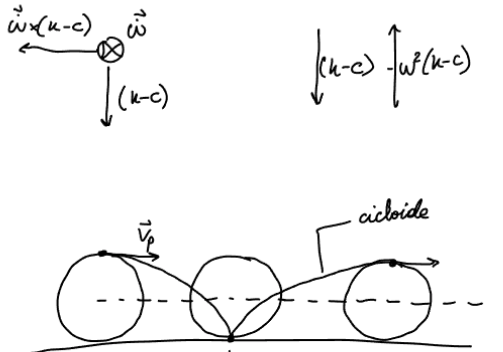 ω̇⃗×(k-c)
ω̇⃗
(k-c)
(k-c)
-ω²(k-c)
cicloide
V⃗p